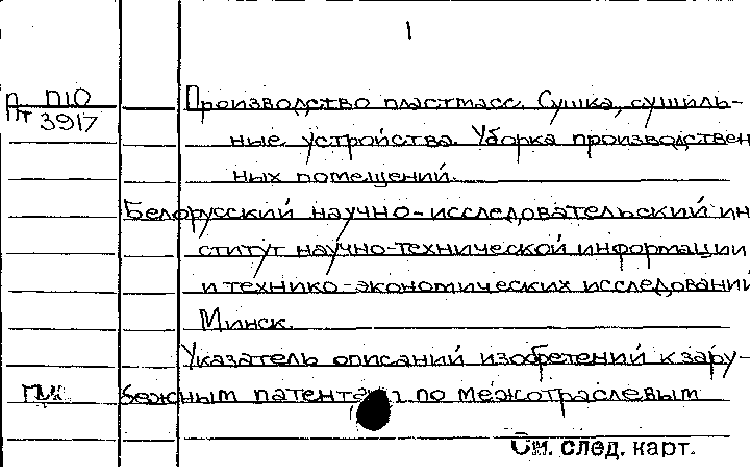 1
П П10
Пт 3917
Производство пластмасс. Сушка, сушиль-
ные устройства. Уборка производствен
ных помещений.
Белорусский научно-исследовательский ин
ститут научно-технической информации
и технико-экономических исследований
Минск.
Указатель описаний изобретений к зару-
бежным патентам по межотраслевым
См. след. карт.